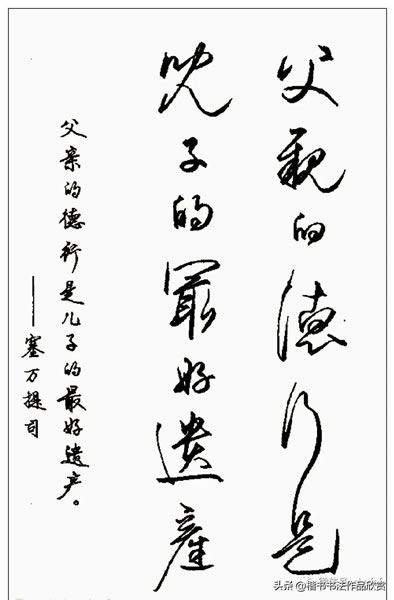 父親的德行是
兒子的最好遺產
父亲的德行是儿子的最好遗产。
——塞万提司
头条 @楷书书法作品欣赏